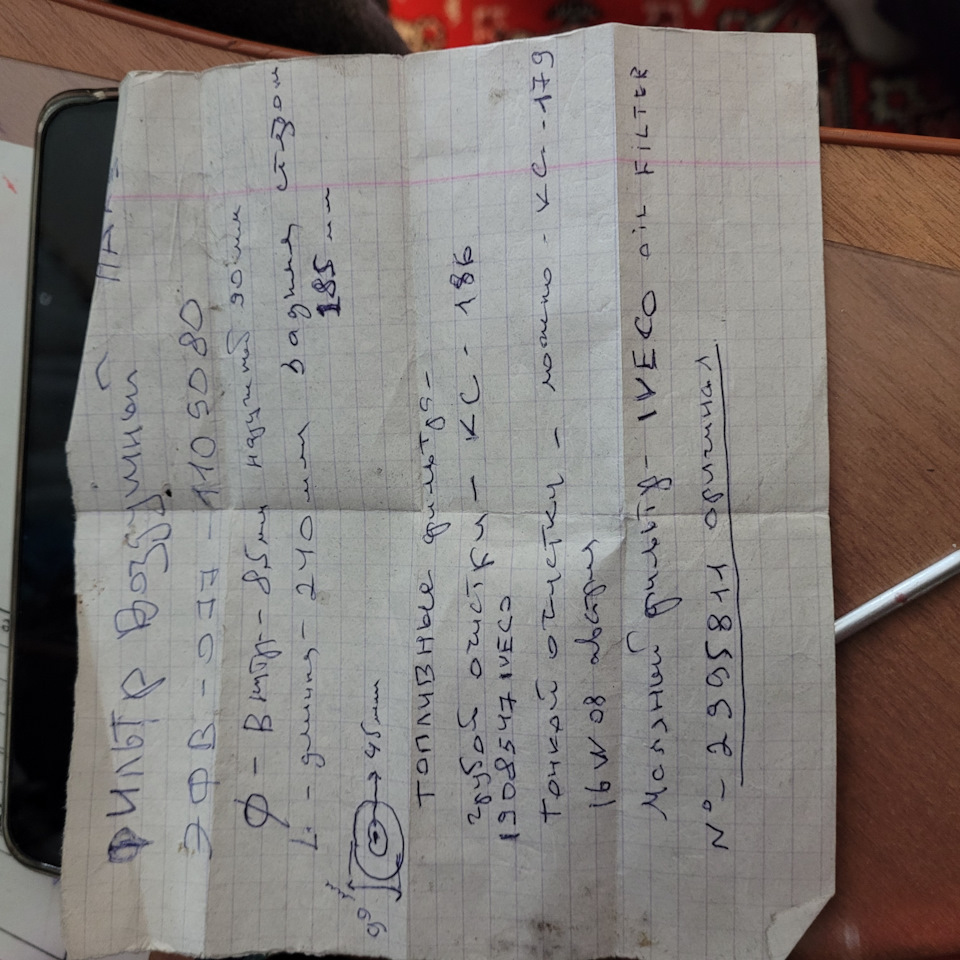 ФИЛЬТР Воздушный ПАЗ
ЭФВ-077-1109080
Ф - Внтр - 85мм наружной 90мм
L - длинна - 240 мм задняя сторон
185 мм
99
45мм
ТОПЛИВНЫЕ фильтра -
грубой очистки - КС - 186
1908547 IVECO
Тонкой очистки - можно - КС-179
16W08 австрия
Масляный фильтр - IVECO OiL FiLTER
N° - 2995811 оригинал